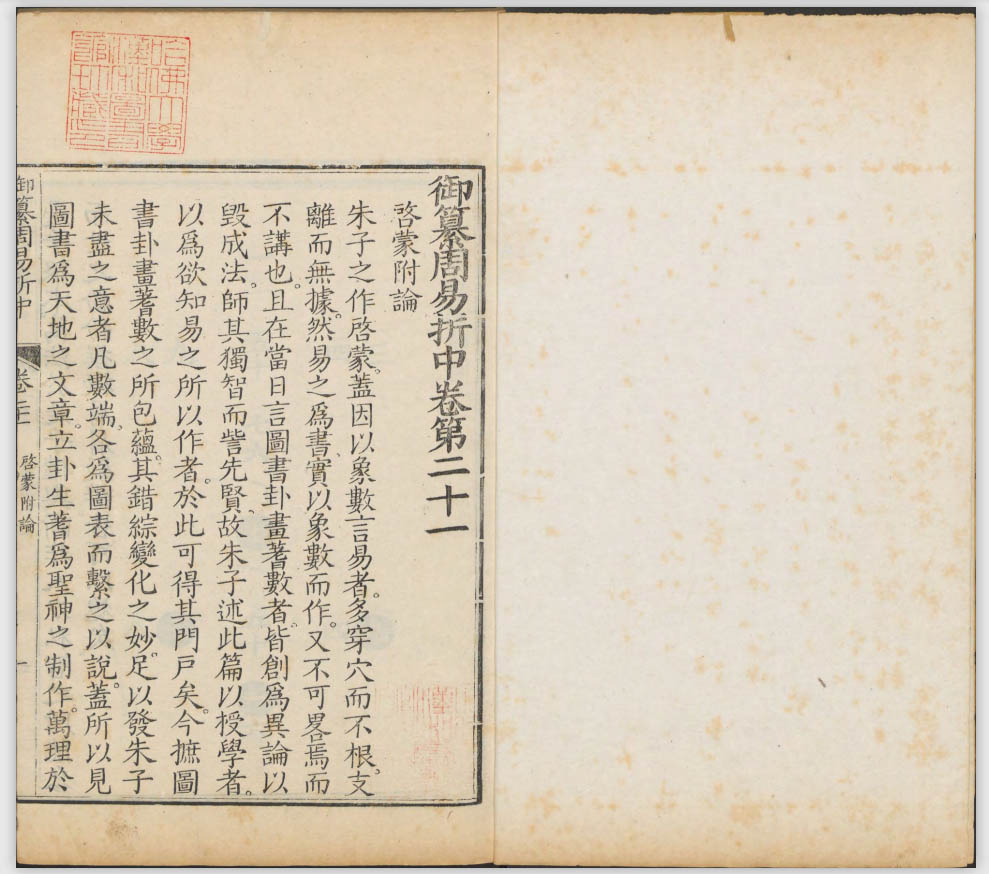 哈佛大學
漢和圖書
館珍藏印
御纂周易折中卷第二十一
啓蒙附論
朱子之作啓蒙。蓋因以象數言易者。多穿穴而不根。支
離而無據。然易之爲書、實以象數而作。又不可畧焉而
不講也。且在當日言圖書卦畫蓍數者、皆創爲異論以
毀成法。師其獨智而訾先賢、故朱子述此篇以授學者。
以爲欲知易之所以作者。於此可得其門戸矣。今摭圖
書卦畫蓍數之所包蘊。其錯綜變化之妙。足以發朱子
未盡之意者凡數端。各爲圖表而繫之以說。蓋所以見
圖書爲天地之文章。立卦生蓍爲聖神之制作。萬理於
御纂周易折中
卷二十一
啓蒙附論
一